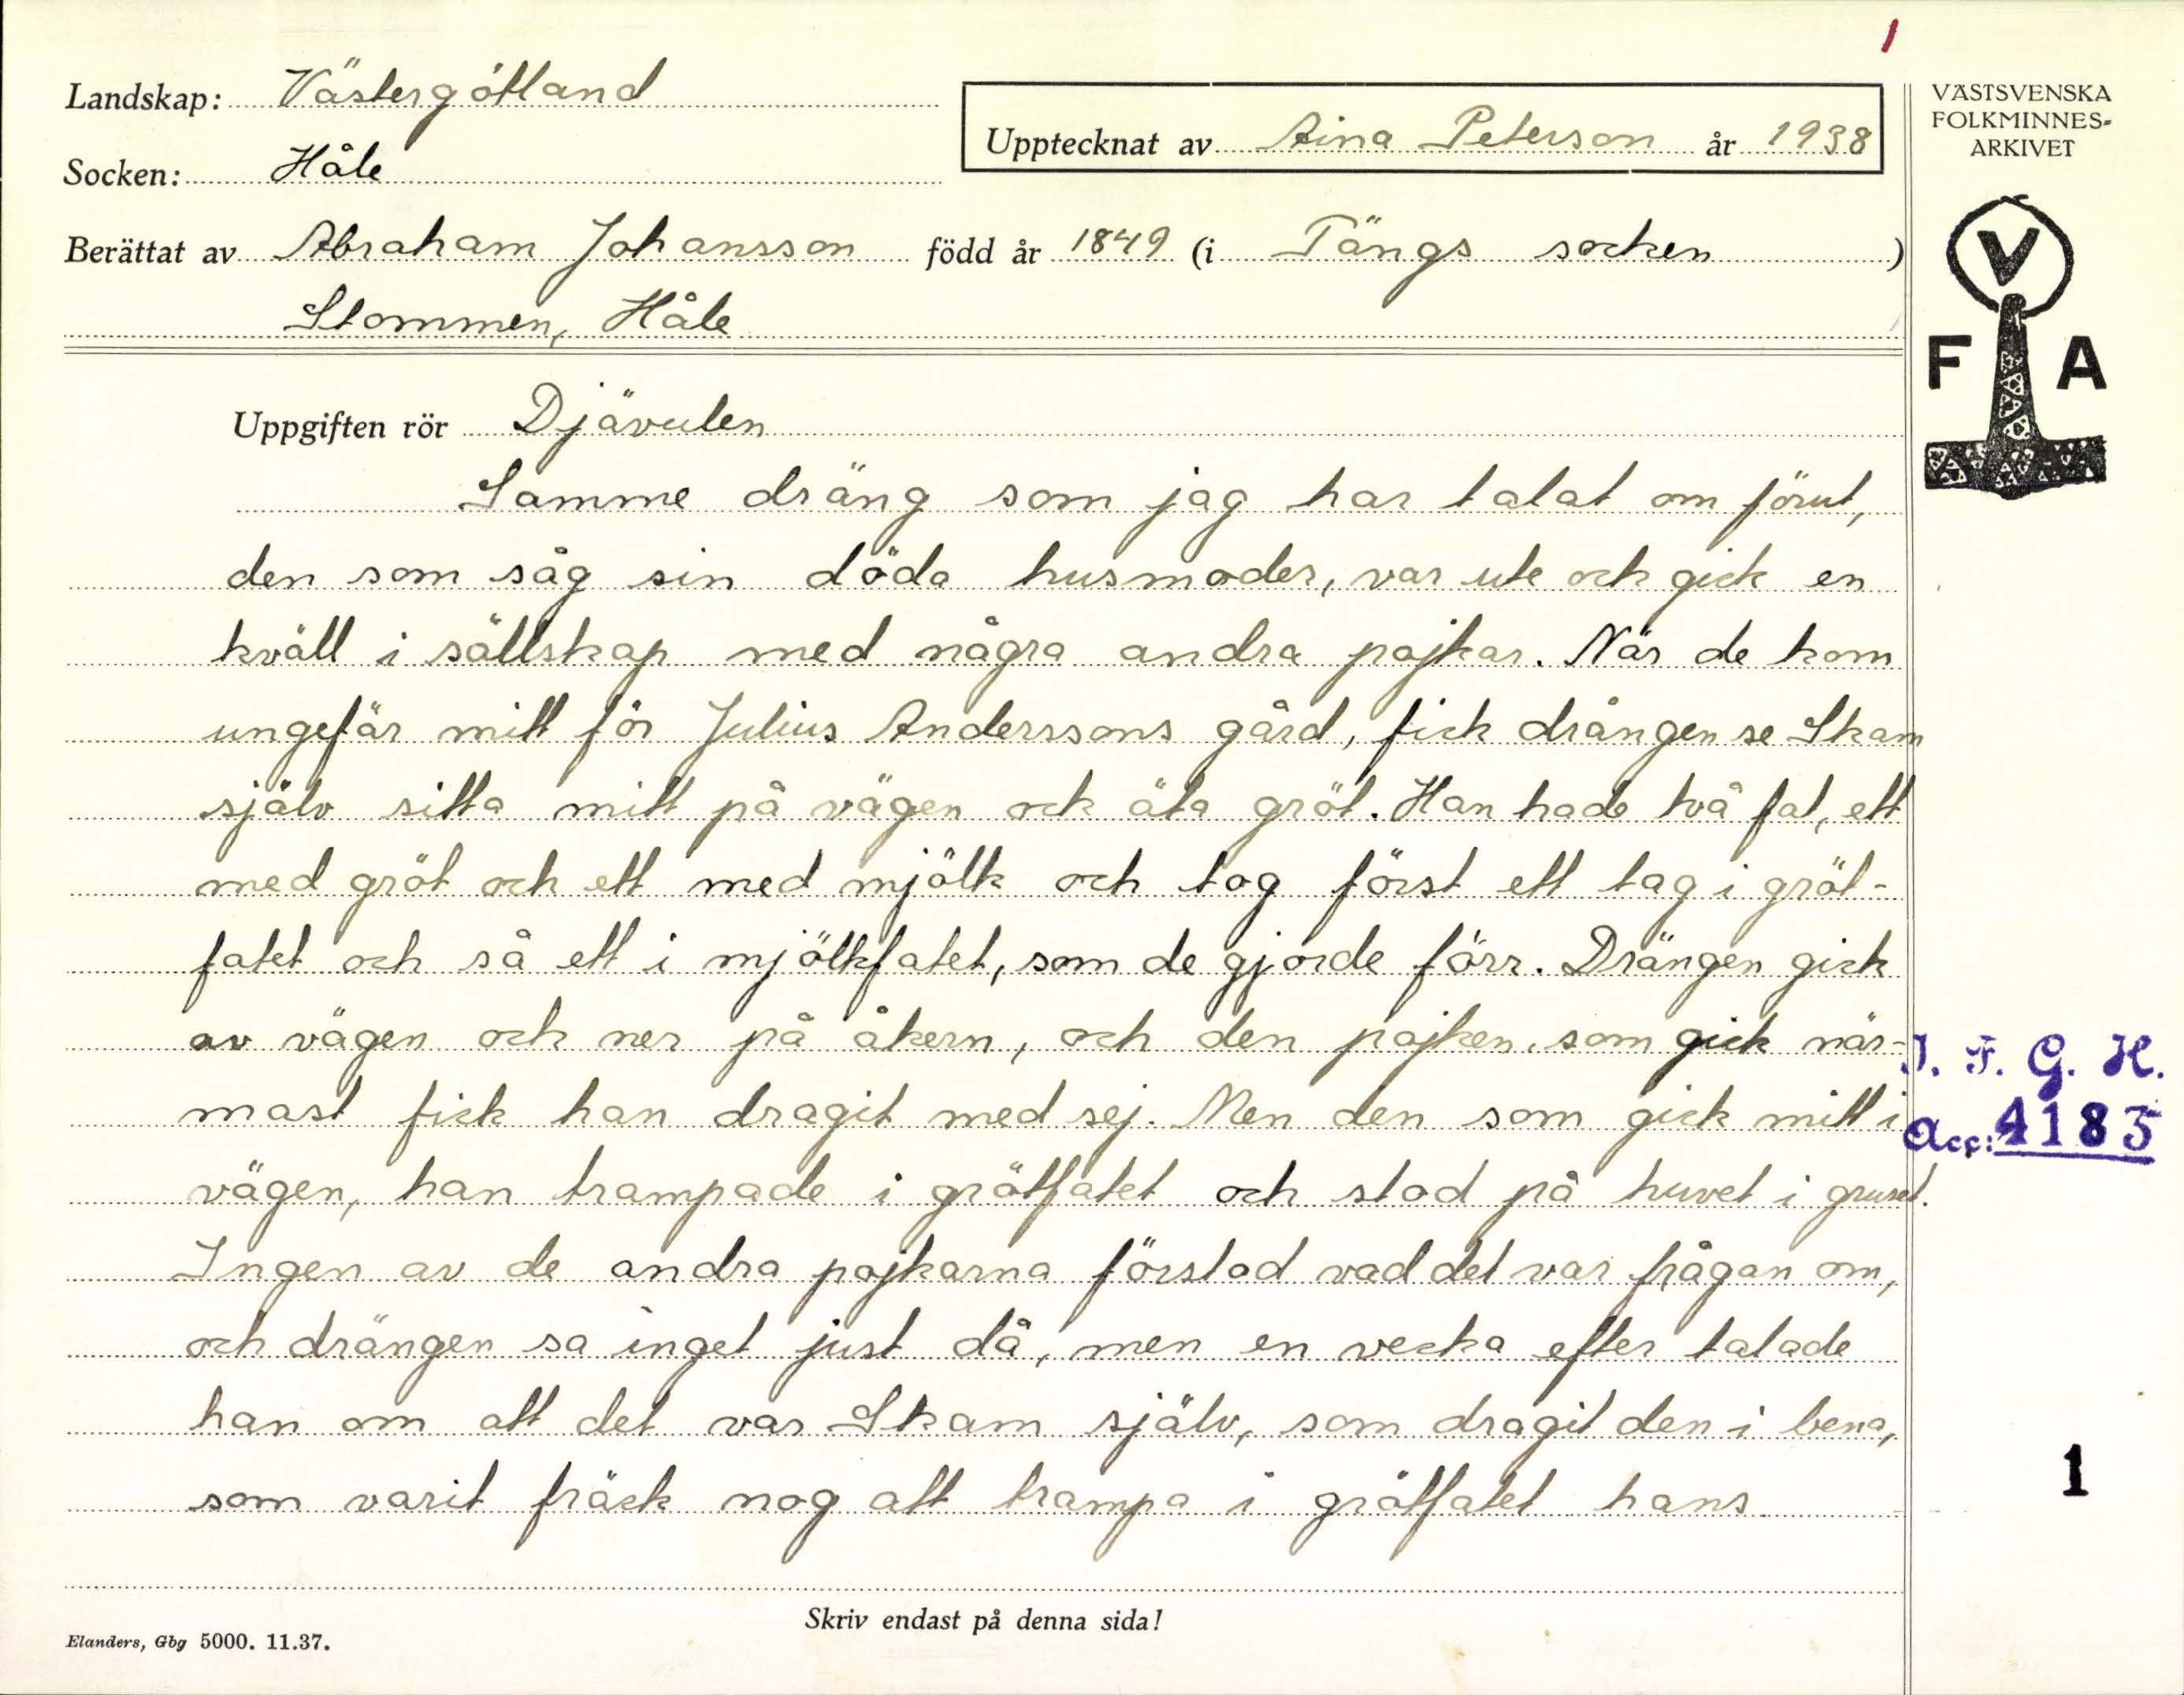 1
Landskap: Västergötland
Socken: Håle
Upptecknat av Aina Peterson år 1938
Berättat av Abraham Johansson född år 1849 (i Tängs socken )
Stommen, Håle
VÄSTSVENSKA
FOLKMINNES-
ARKIVET
V
F A
Uppgiften rör Djävulen
Samme dräng som jag har talat om förut,
den som såg sin döda husmoder, var ute och gick en
kväll i sällskap med några andra pojkar. När de kom
ungefär mitt för Julius Anderssons gård, fick drängen se Skam
själv sitta mitt på vägen och äta gröt. Han hade två fat, ett
med gröt och ett med mjölk och tog först ett tag i gröt-
fatet och så ett i mjölkfatet, som de gjorde förr. Drängen gick
av vägen och ner på åkern, och den pojken, som gick när-
mast fick han dragit med sej. Men den som gick mitt i
vägen, han trampade i grötfatet och stod på huvet i gruset.
Ingen av de andra pojkarna förstod vad det var frågan om,
och drängen sa inget just då, men en vecka efter talade
han om att det var Skam själv, som dragit den i bena,
som varit fräck nog att trampa i grötfatet hans.
I. F. G. H.
Acc: 4185
1
Skriv endast på denna sida!
Elanders, Gbg 5000. 11.37.